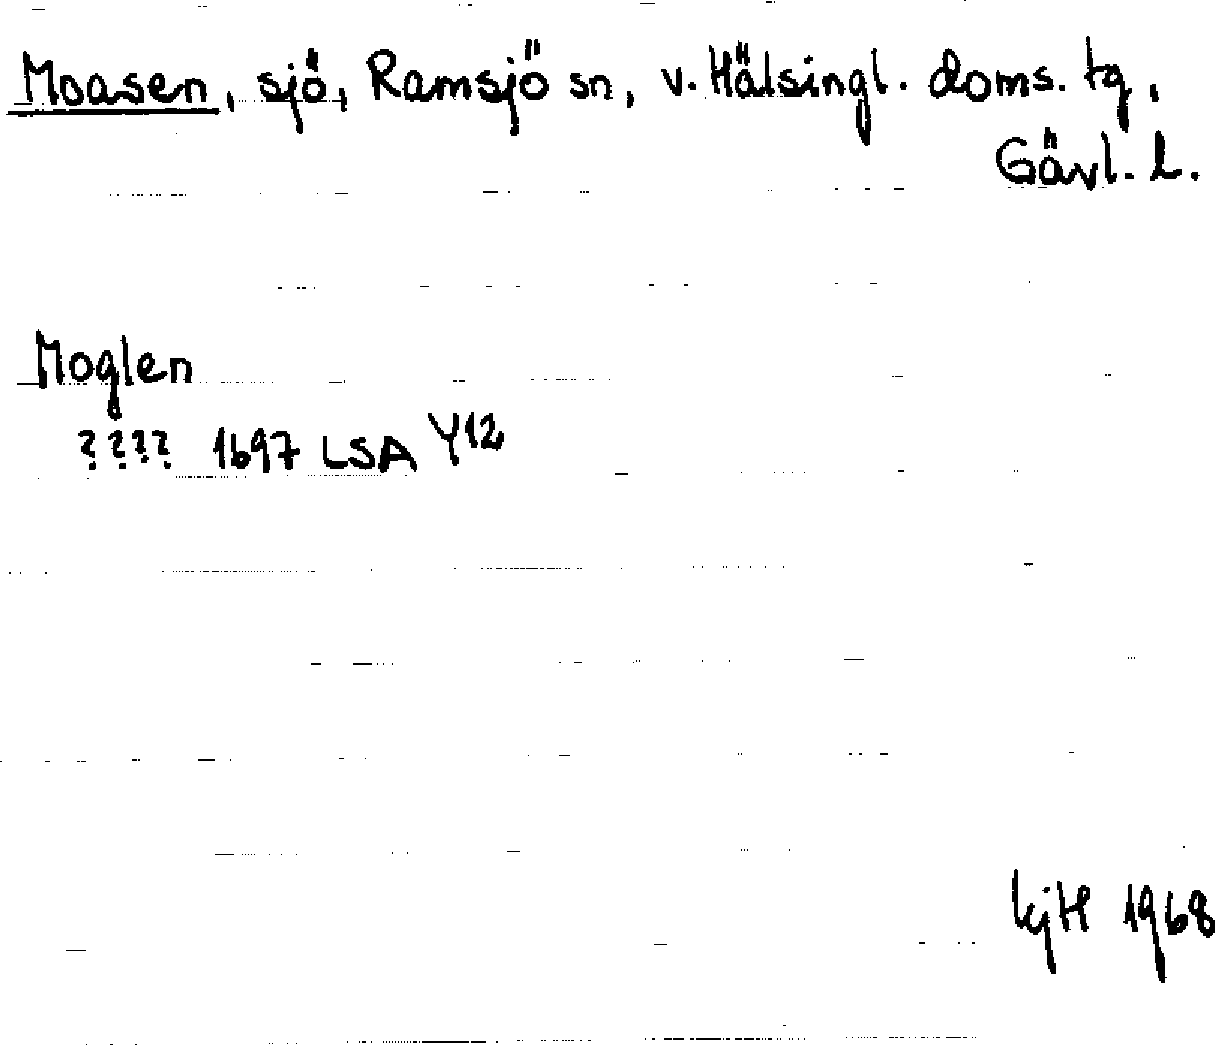 Moasen, sjö, Ramsjö sn, v. Hälsingl. doms. tg,
Gävl. l.
Moglen
???? 1697 LSA Y12
kjH 1968